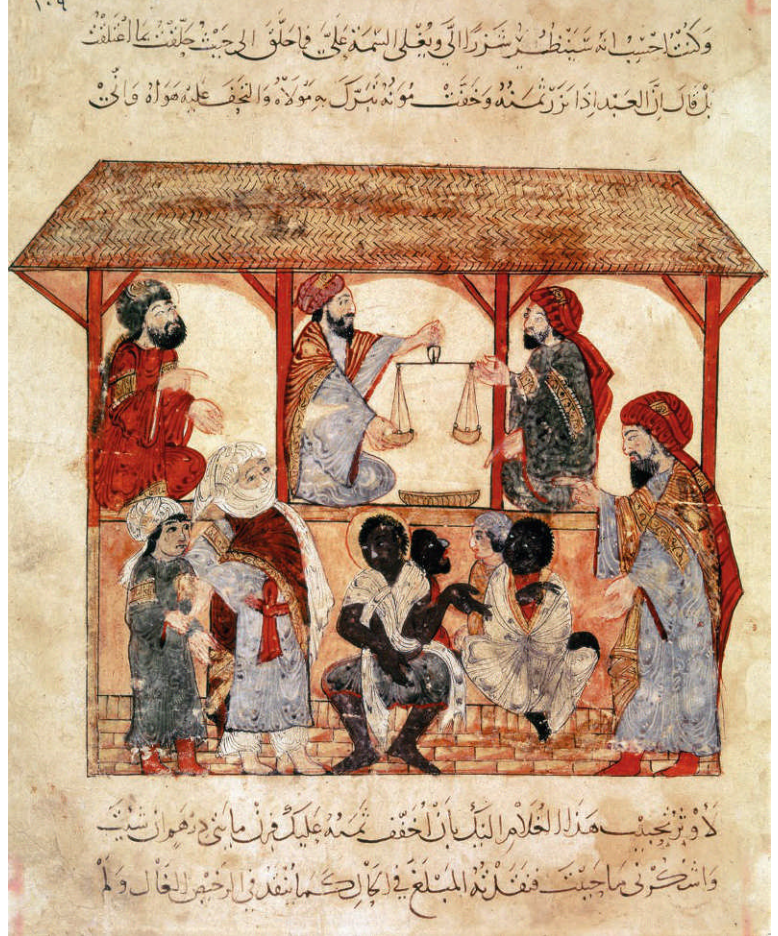 ١٠٩
وكنت احسب انه سينظر شزرا الي ويغلي السيمة علي فما حلق الى حيث حلقت ولا اعتلق بما اعتلقت
بل قال ان العبد اذا نزر ثمنه وخفت مونه تبرك به مولاه والتحف عليه هواه واني
لاوثر تحبيب هذا الغلام اليك بان اخفف ثمنه عليك فزن مايتي درهم ان شيت
واشكر لي ما حييت فنقدته المبلغ في الحال كما ينقد في الرخيص الغال ولم